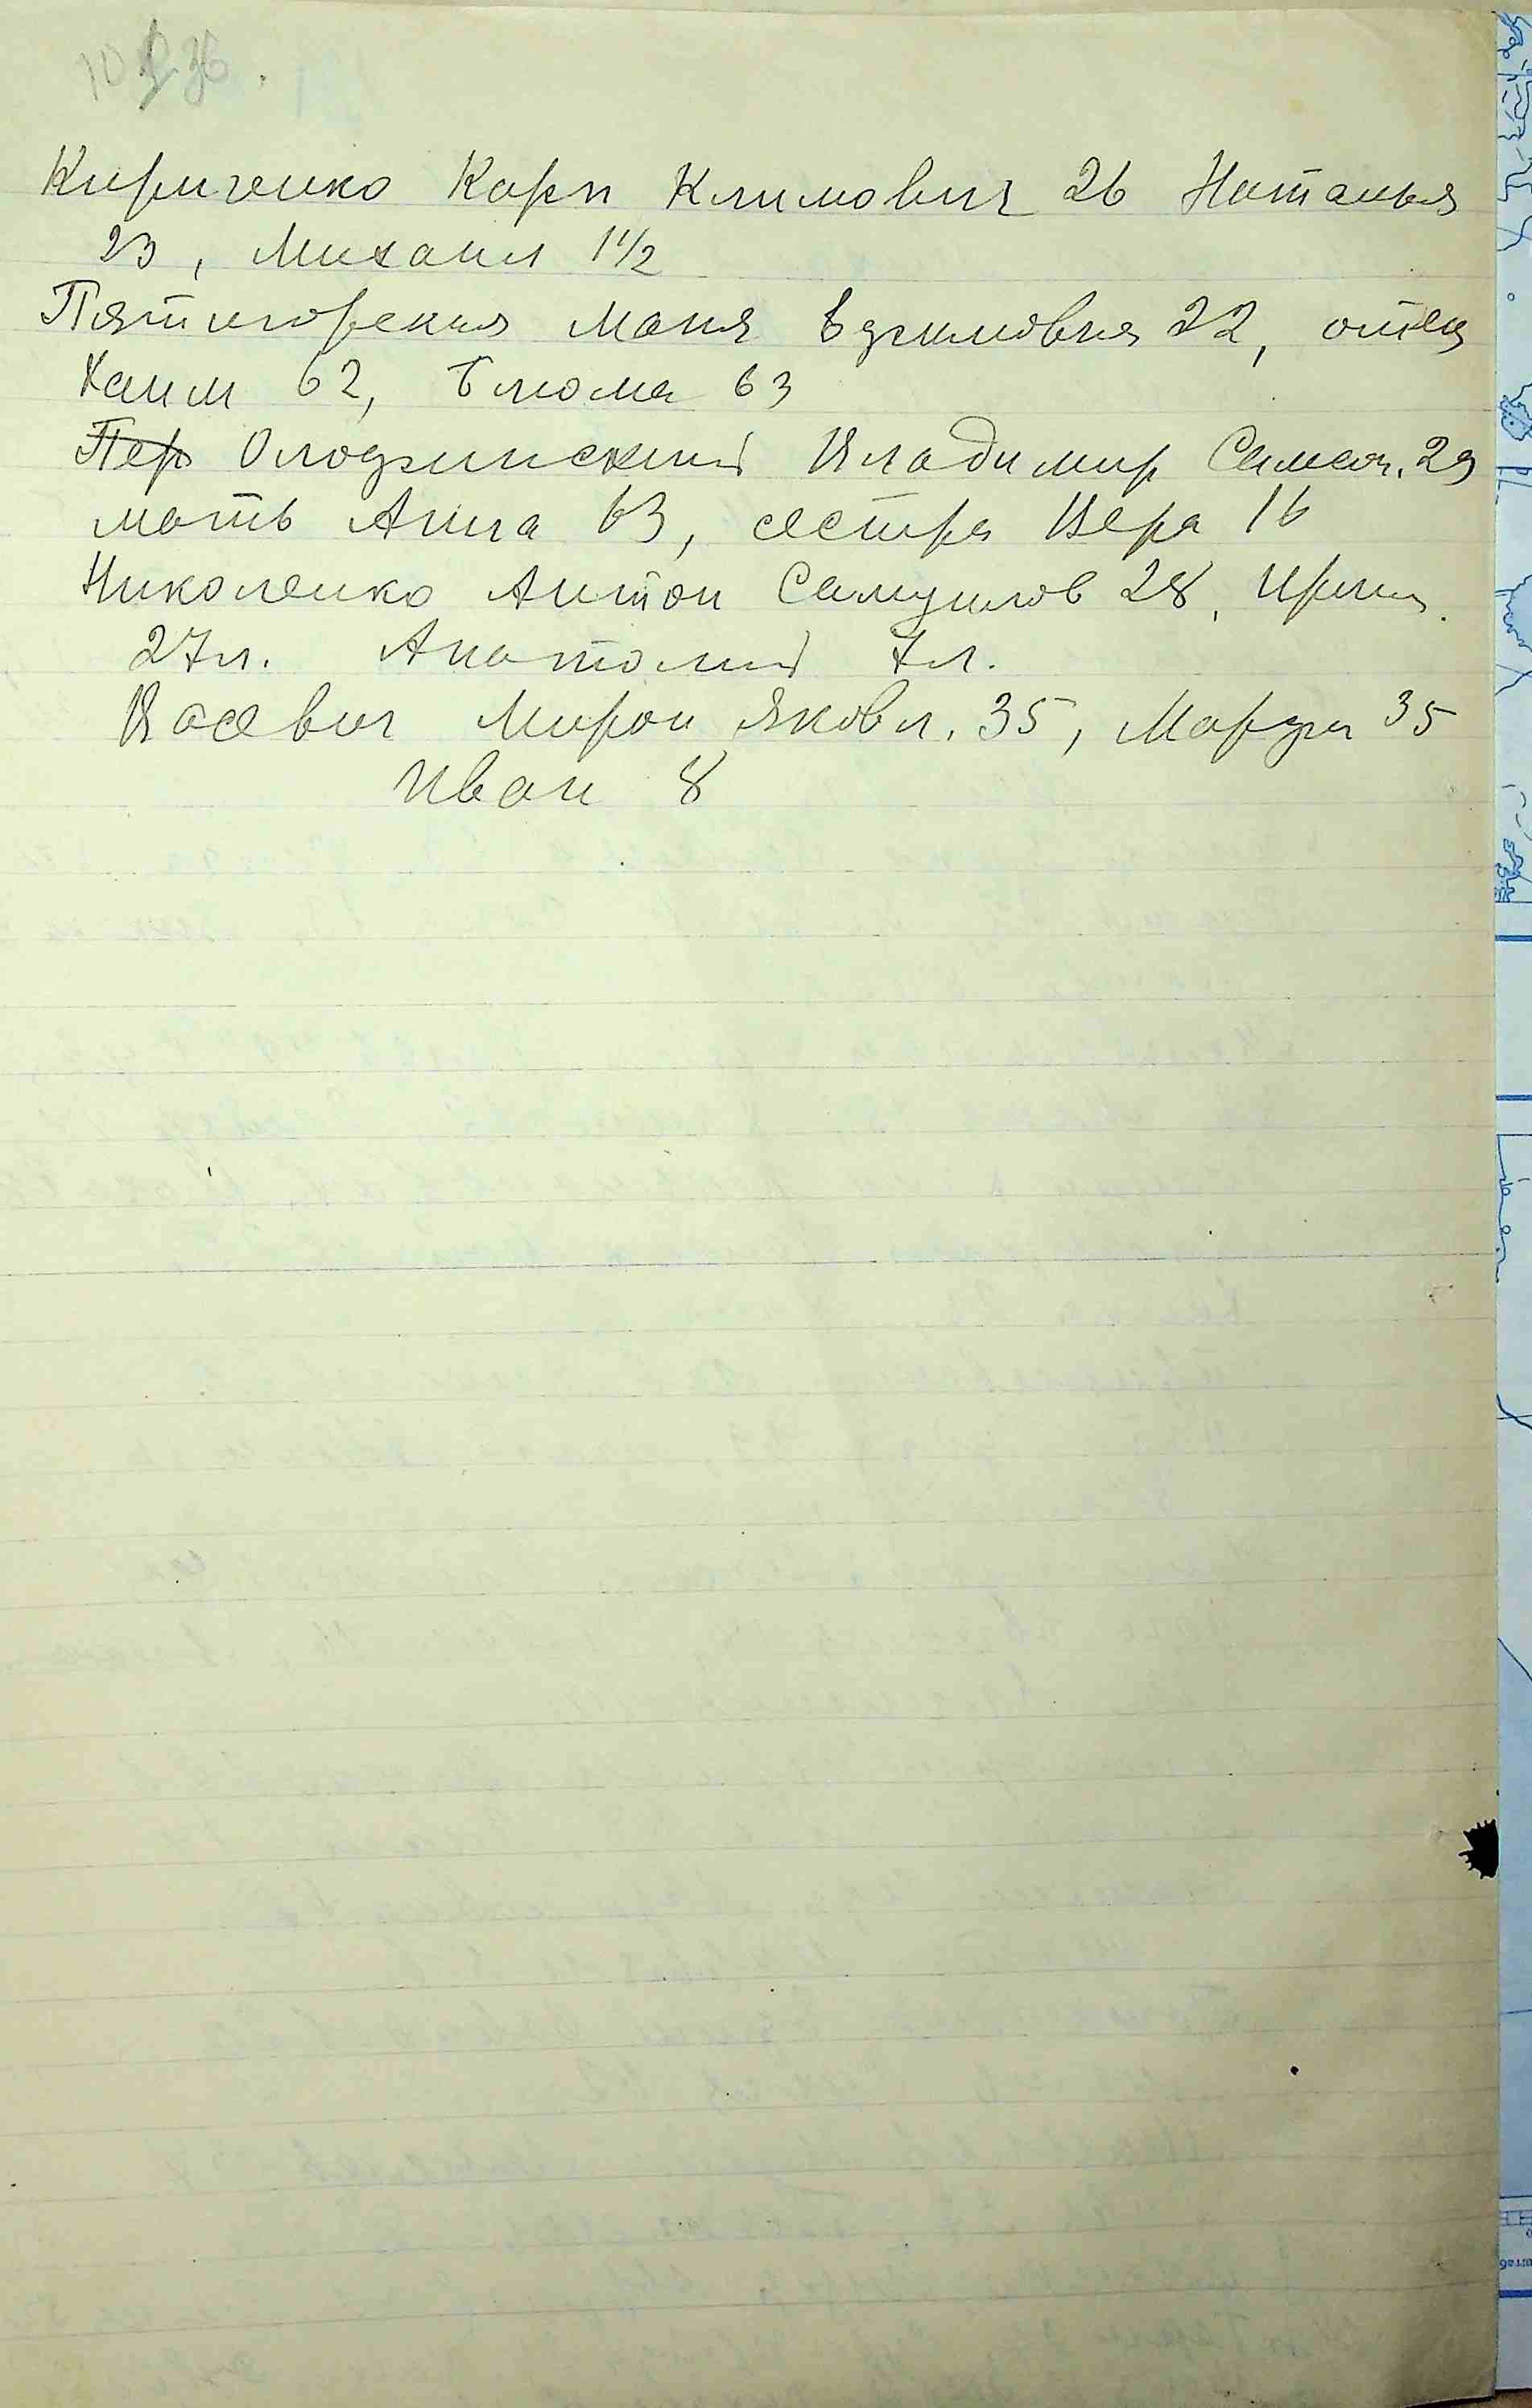 Кириченко Карп Климович 26 Наталья
23, Михаил 1½
Пятигорская Маня 22, отец
Хаим 62, Блюма 63
Пер Олодзинский Владимир Семен. 29
мать Анна 63, сестра Вера 16
Николенко Антон Самуилов 28, Ирина
27 л. Анатолий 7 л.
Мирон Яковл. 35, 35
Иван 8